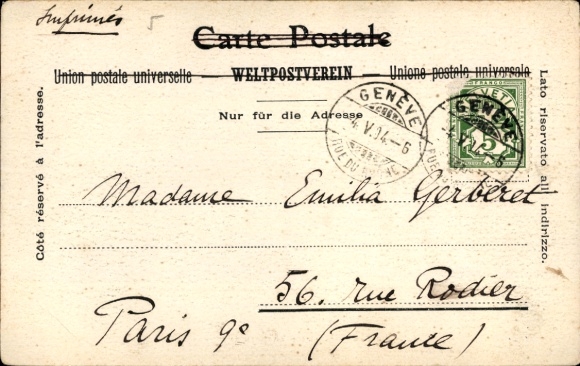 Imprimés 5
Carte Postale
Union postale universelle — WELTPOSTVEREIN — Unione postale universale
Nur für die Adresse
Côté réservé à l'adresse.
Lato riservato all' indirizzo.
GENÈVE
4.V.04.-6
RUE DU
FRANCO
HELVETIA
5
GENÈVE
Madame Emilia Gerberet
56. rue Rodier
Paris 9e (France)